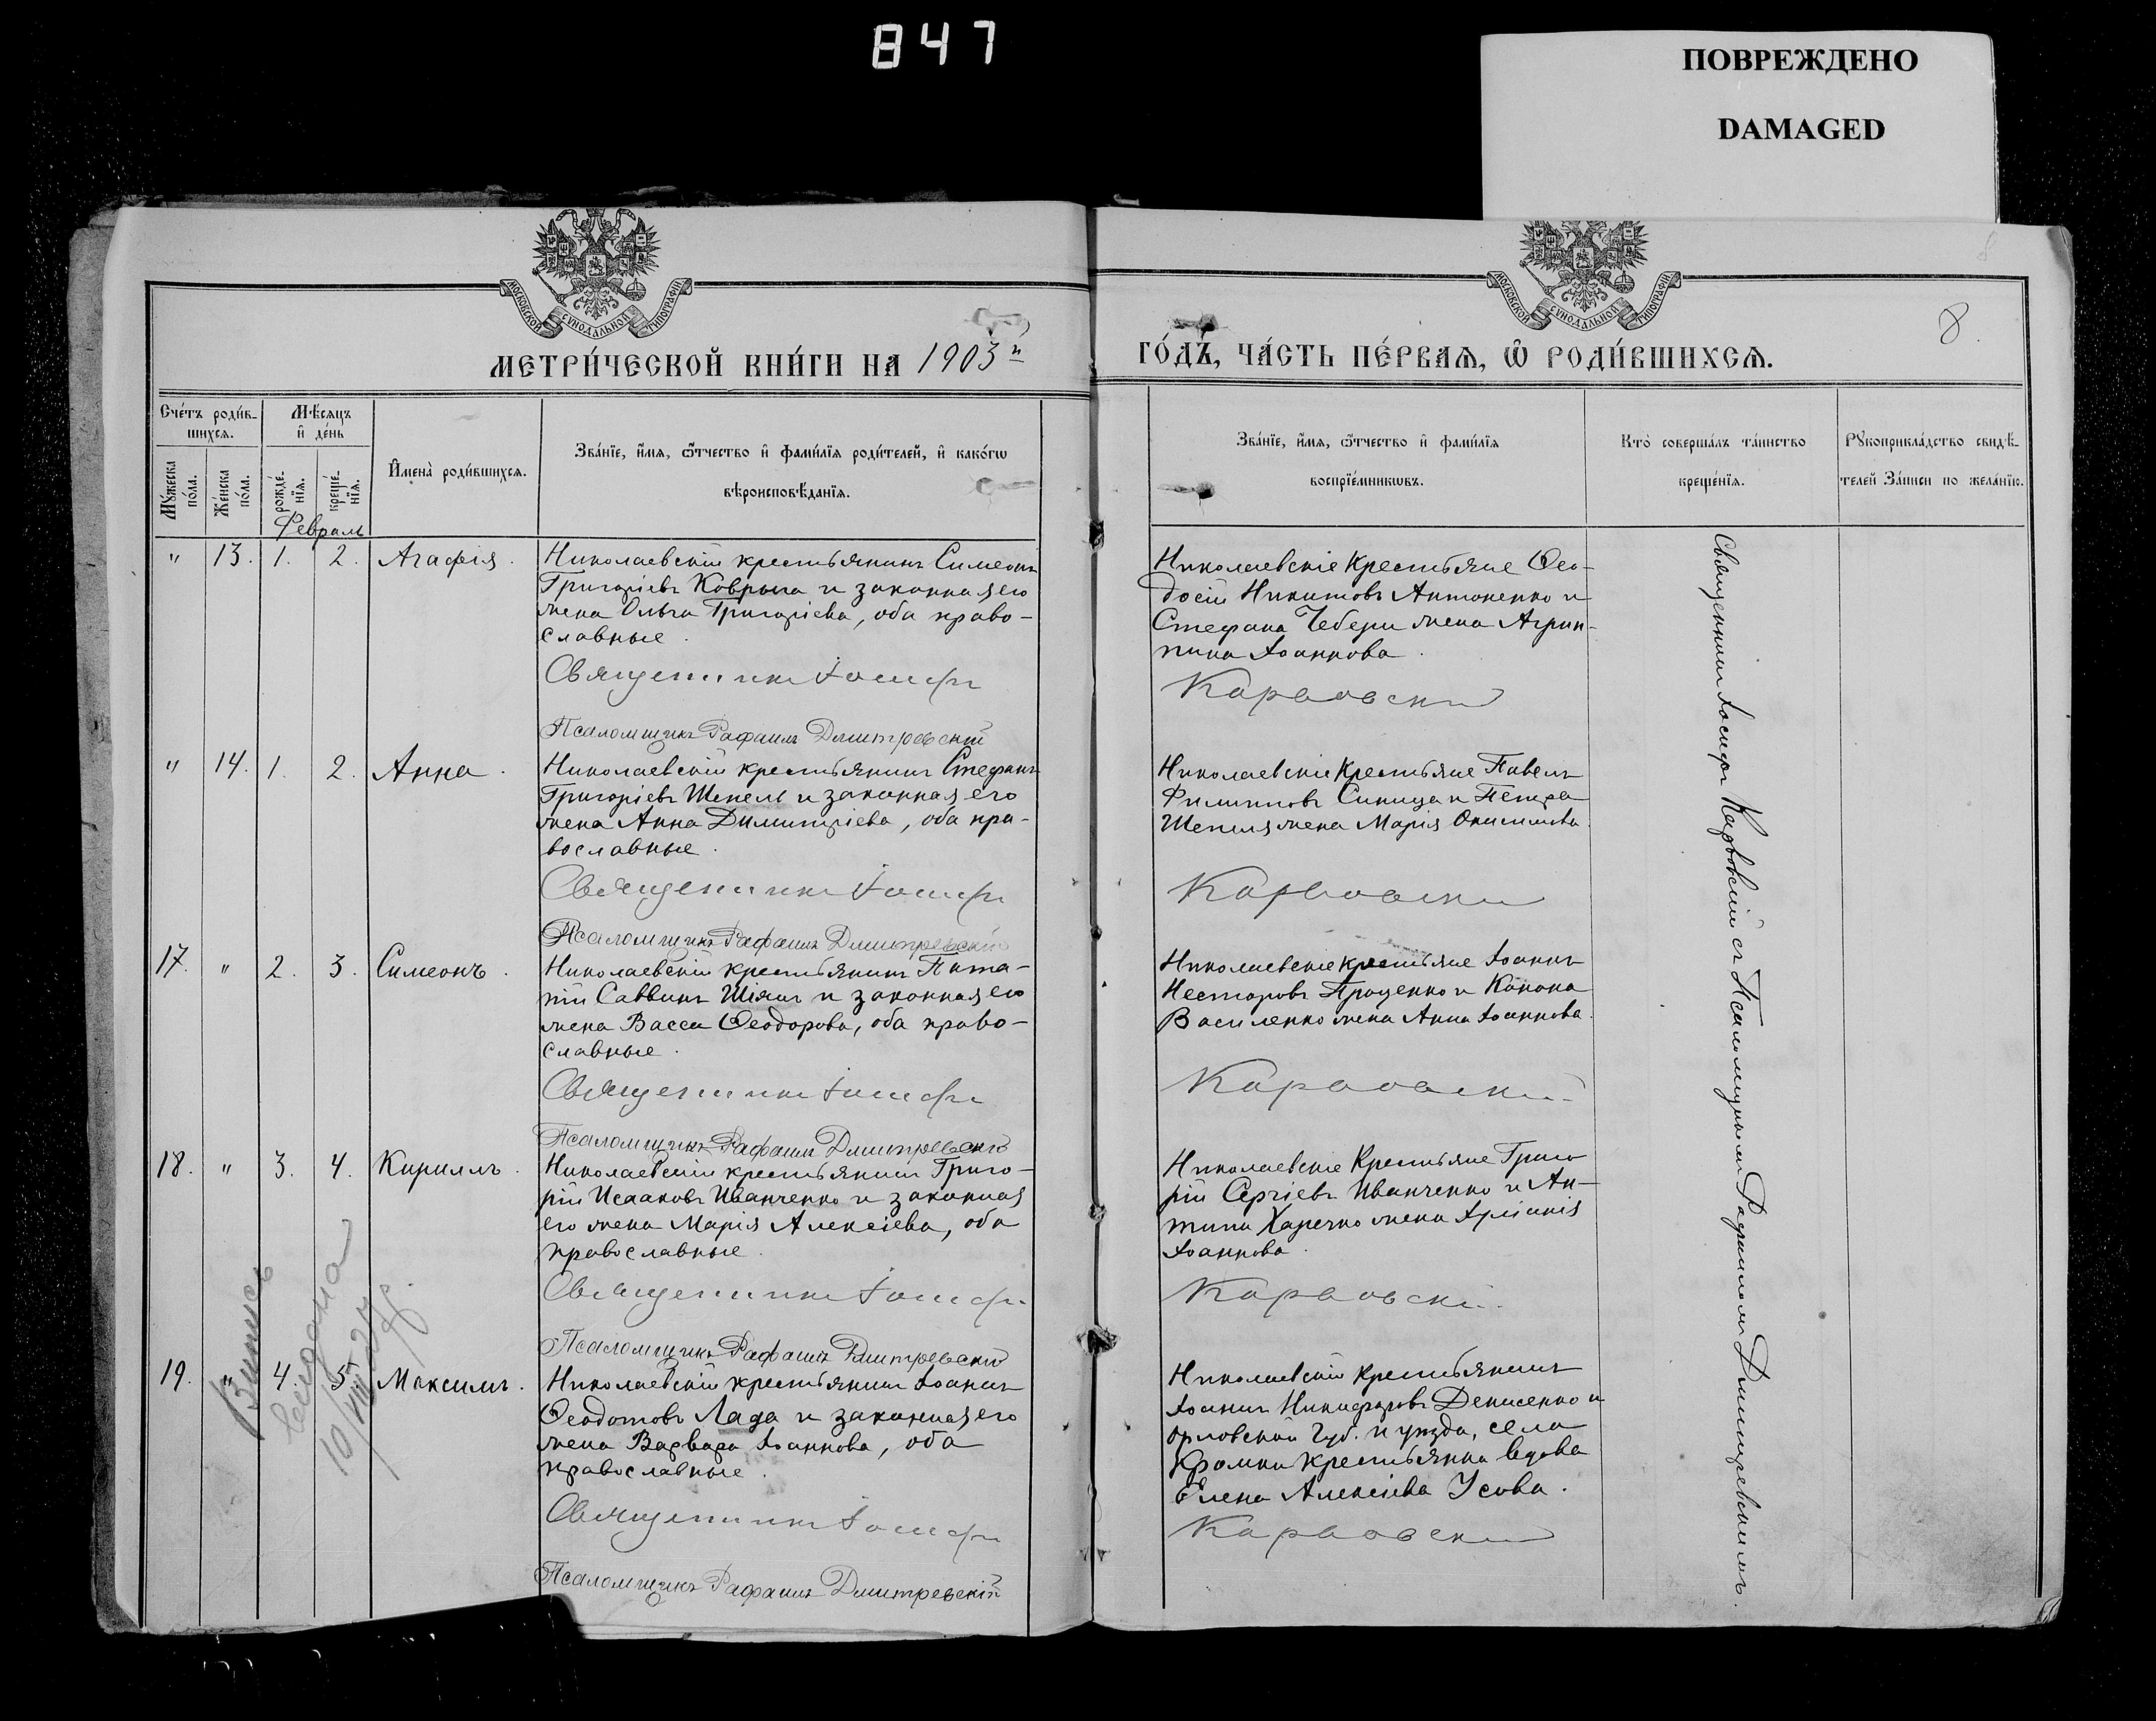 847
ПОВРЕЖДЕНО
DAMAGED
МОСКОВСКОЙ СУНОДАЛЬНОЙ ТИПОГРАФІИ
МОСКОВСКОЙ СУНОДАЛЬНОЙ ТИПОГРАФІИ
8.
МЕТРИ́ЧЕСКОЙ КНИ́ГИ НА 1903й
ГО́ДЪ, ЧА́СТЬ ПЕ́РВАѦ, Ѿ РОДИ́ВШИХСѦ.
Сче́тъ роди́в-
шихсѧ.
Мѣ́сѧцъ
и҆ де́нь
Мꙋ́жеска
по́ла.
Же́нска
по́ла.
рожде́-
нїѧ.
креще́-
нїѧ.
И҆мена̀ роди́вшихсѧ.
Зва́нїе, и҆́мѧ, ѻ҆́тчество и҆ фами́лїѧ роди́телей, и҆ како́гѡ
вѣроисповѣ́данїѧ.
Зва́нїе, и҆́мѧ, ѻ҆́тчество и҆ фами́лїѧ
воспрїе́мникѡвъ.
Кто̀ соверша́лъ та́инство
креще́нїѧ.
Рꙋкоприкла́дство свидѣ́-
телей За́писи по жела́нїю.
Февраль
" 13. 1. 2. Агафія.
Николаевскій крестьянинъ Симеонъ
Григоріевъ Коврыга и законная его
жена Ольга Григоріева, оба право-
славные.
Священникъ Іосифъ
Псаломщикъ Рафаилъ Дмитревскій
Николаевскіе крестьяне Ѳео-
досій Никитовъ Антоненко и
Стефана Чебери жена Агрип-
пина Іоаннова.
Карповскій
" 14. 1. 2. Анна.
Николаевскій крестьянинъ Стефанъ
Григоріевъ Шепель и законная его
жена Анна Димитріева, оба пра-
вославные.
Священникъ Іосифъ
Псаломщикъ Рафаилъ Дмитревскій
Николаевскіе крестьяне Павелъ
Филипповъ Синица и Петра
Шепеля жена Марія Онисимова.
Карповскій
17. " 2. 3. Симеонъ.
Николаевскій крестьянинъ Пота-
пій Саввинъ Шіянъ и законная его
жена Васса Ѳеодорова, оба право-
славные.
Священникъ Іосифъ
Псаломщикъ Рафаилъ Дмитревскій
Николаевскіе крестьяне Іоаннъ
Несторовъ Проценко и Конона
Василенко жена Анна Іоаннова.
Карповскій
18. " 3. 4. Кириллъ.
Николаевскій крестьянинъ Григо-
рій Исааковъ Иванченко и законная
его жена Марія Алексіева, оба
православные.
Священникъ Іосифъ
Псаломщикъ Рафаилъ Дмитревскій
Николаевскіе крестьяне Григо
рій Сергіевъ Иванченко и Ан-
типы Харечко жена
Іоаннова.
Карповскій
19. " 4. 5. Максимъ.
Николаевскій крестьянинъ Іоаннъ
Ѳеодотовъ Лада и законная его
жена Варвара Іоаннова, оба
православные.
Священникъ Іосифъ
Псаломщикъ Рафаилъ Дмитревскій
Николаевскій крестьянинъ
Іоаннъ Никифоровъ Денисенко и
Орловской Губ. и уѣзда, села
крестьянка вдова
Елена Алексіева Усова.
Карповскій
Священникъ Іосифъ Карповскій съ Псаломщикомъ Рафаиломъ Дмитревскимъ.
Випись
видана
10/VIII